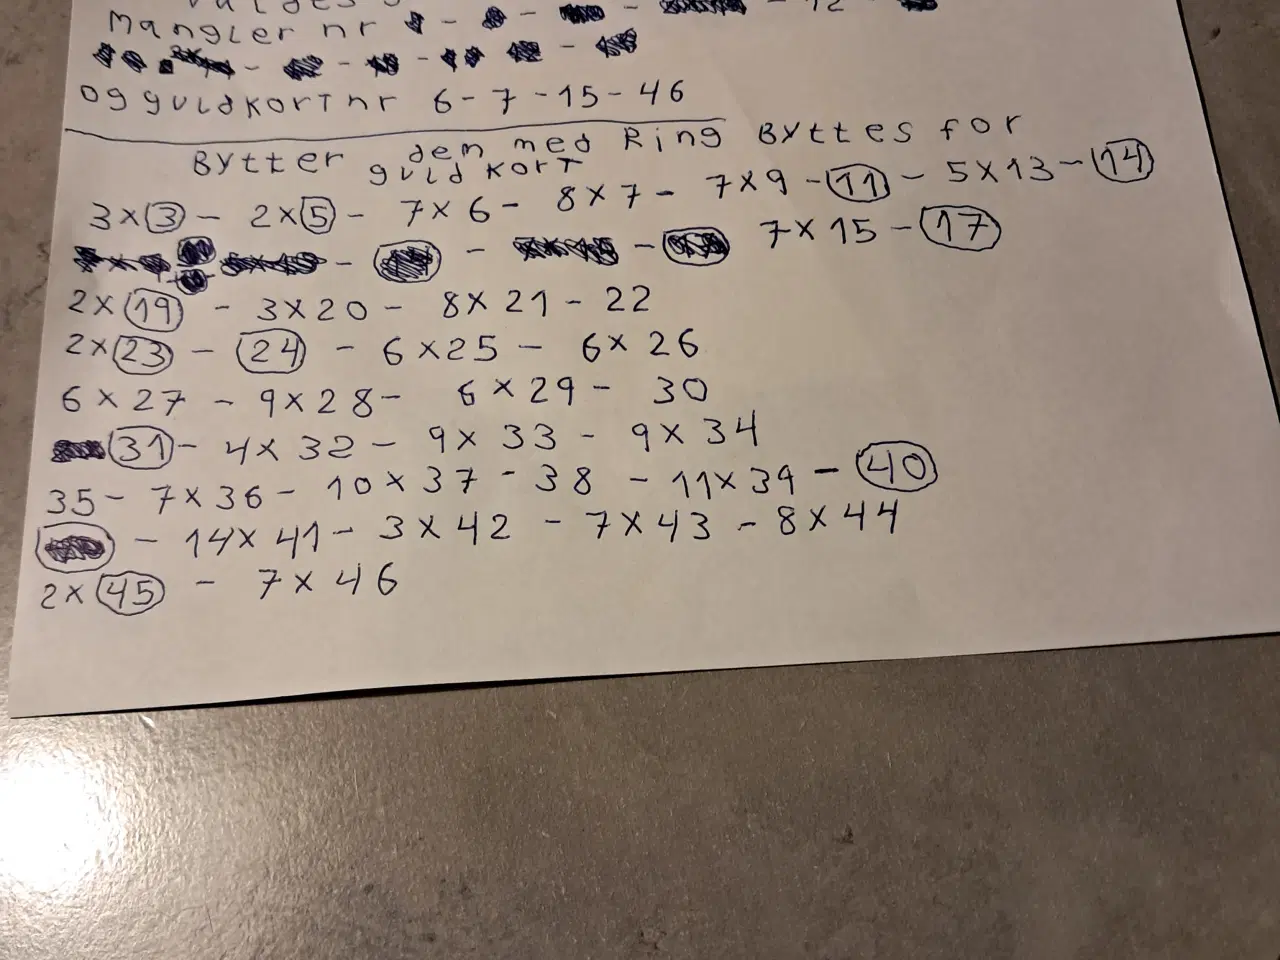 Mangler nr - - - - 12 -
og guldkort nr 6-7-15-46
Bytter dem med Ring Byttes for
guld kort
3x3 - 2x5 - 7x6 - 8x7 - 7x9 - 11 - 5x13 - 14
7x15 - 17
2x19 - 3x20 - 8x21 - 22
2x23 - 24 - 6x25 - 6x26
6x27 - 9x28 - 6x29 - 30
31 - 4x32 - 9x33 - 9x34
35 - 7x36 - 10x37 - 38 - 11x39 - 40
- 14x41 - 3x42 - 7x43 - 8x44
2x45 - 7x46